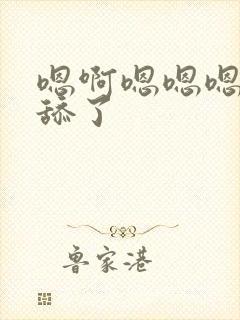 嗯啊嗯嗯嗯
舔了
鲁家港